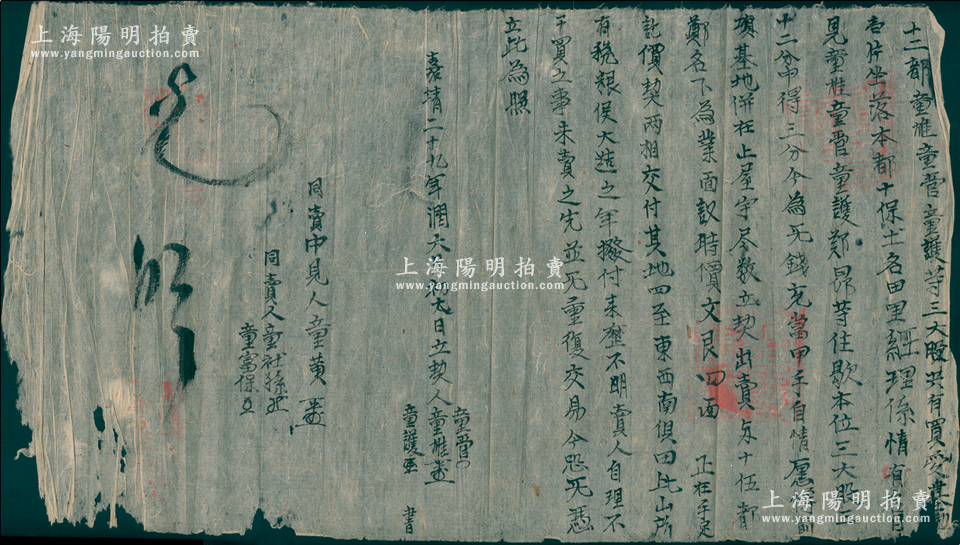 十二都童雄童晋童護等三大股共有買受基
壱片坐落本都十保土名田里經理係情有
見童雄童晋童護鄭昂等住歇本位三大股
十二分中得三分今為无錢充當甲手自情愿
塝基地併在上屋宇尽数立契出賣与十伍都
鄭名下為業面議時價文艮四両正在手足
訖價契両相交付其地四至東西南俱田北山所
有稅粮候大造之年撥付来歷不明賣人自理不
干買立事未賣之先並无重復交易今恐无憑
立此為照
嘉靖二十九年潤六月初九日立契人童雄
童晋
童護
書
同賣中見人童黄
同賣人童社孫
童富保
上海陽明拍賣
www.yangmingauction.com
上海陽明拍賣
www.yangmingauction.com
上海陽明拍賣
www.yangmingauction.com
上海陽明拍賣
www.yangmingauction.com